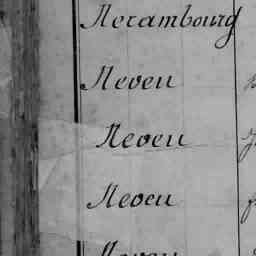 Nerambourg
Neveu
Neveu
Neveu
Neveu